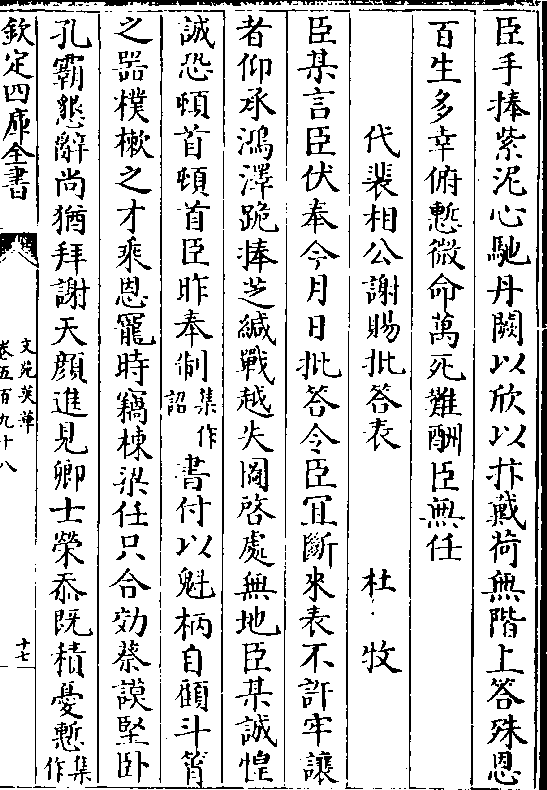 臣手捧紫泥心馳丹闕以欣以抃戴荷無階上答殊恩
百生多幸俯慙微命萬死難酬臣無任
代裴相公謝賜批答表　杜牧
臣某言臣伏奉今月日批答令臣宜斷來表不許牢讓
者仰承鴻澤跪捧芝緘戰越失圖啓處無地臣某誠惶
誠恐頓首頓首臣昨奉制集作詔書付以魁柄自顧斗筲
之器樸樕之才乘恩寵時竊棟梁任只合効蔡謨堅卧
孔霸懇辭尚猶拜謝天顔進見卿士榮忝既積憂慙集作
欽定四庫全書
文苑英華
卷五百九十八
十七